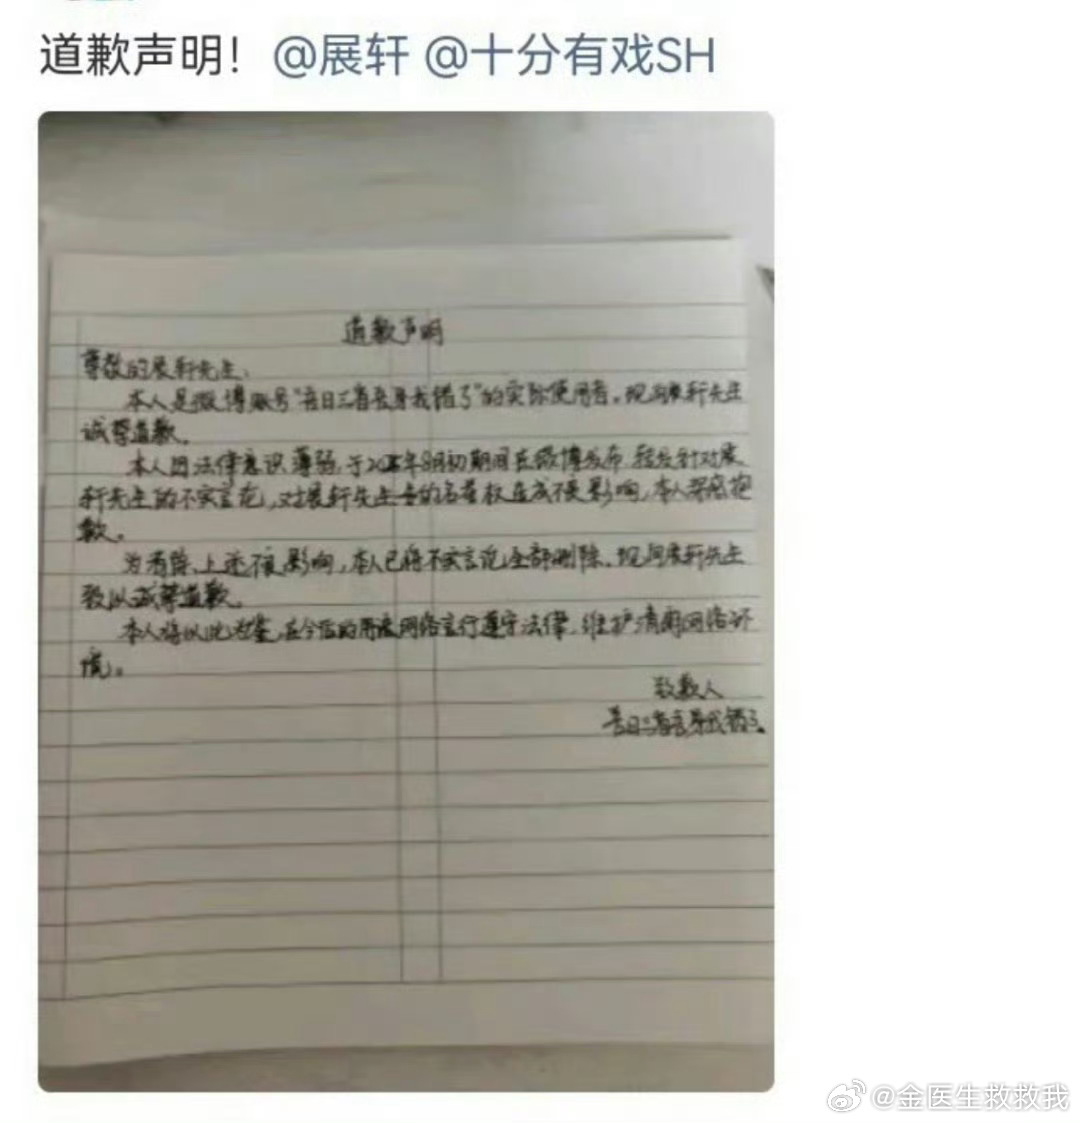 道歉声明！@展轩 @十分有戏SH
道歉声明
尊敬的展轩先生、
本人是微博账号"吾日三省吾身我错了"的实际使用者。现向展轩先生
诚挚道歉。
本人因法律意识薄弱,于年8月初期间在微博发布、转发针对展
轩先生的不实言论,对展轩先生的名誉权造成不良影响,本人深感抱
歉。
为消除上述不良影响,本人已将不实言论全部删除。现向展轩先生
致以诚挚道歉。
本人将以此为鉴,在今后的网络言行遵守法律,维护清朗网络环
境。
致歉人
吾日三省吾身我错了。
@金医生救救我